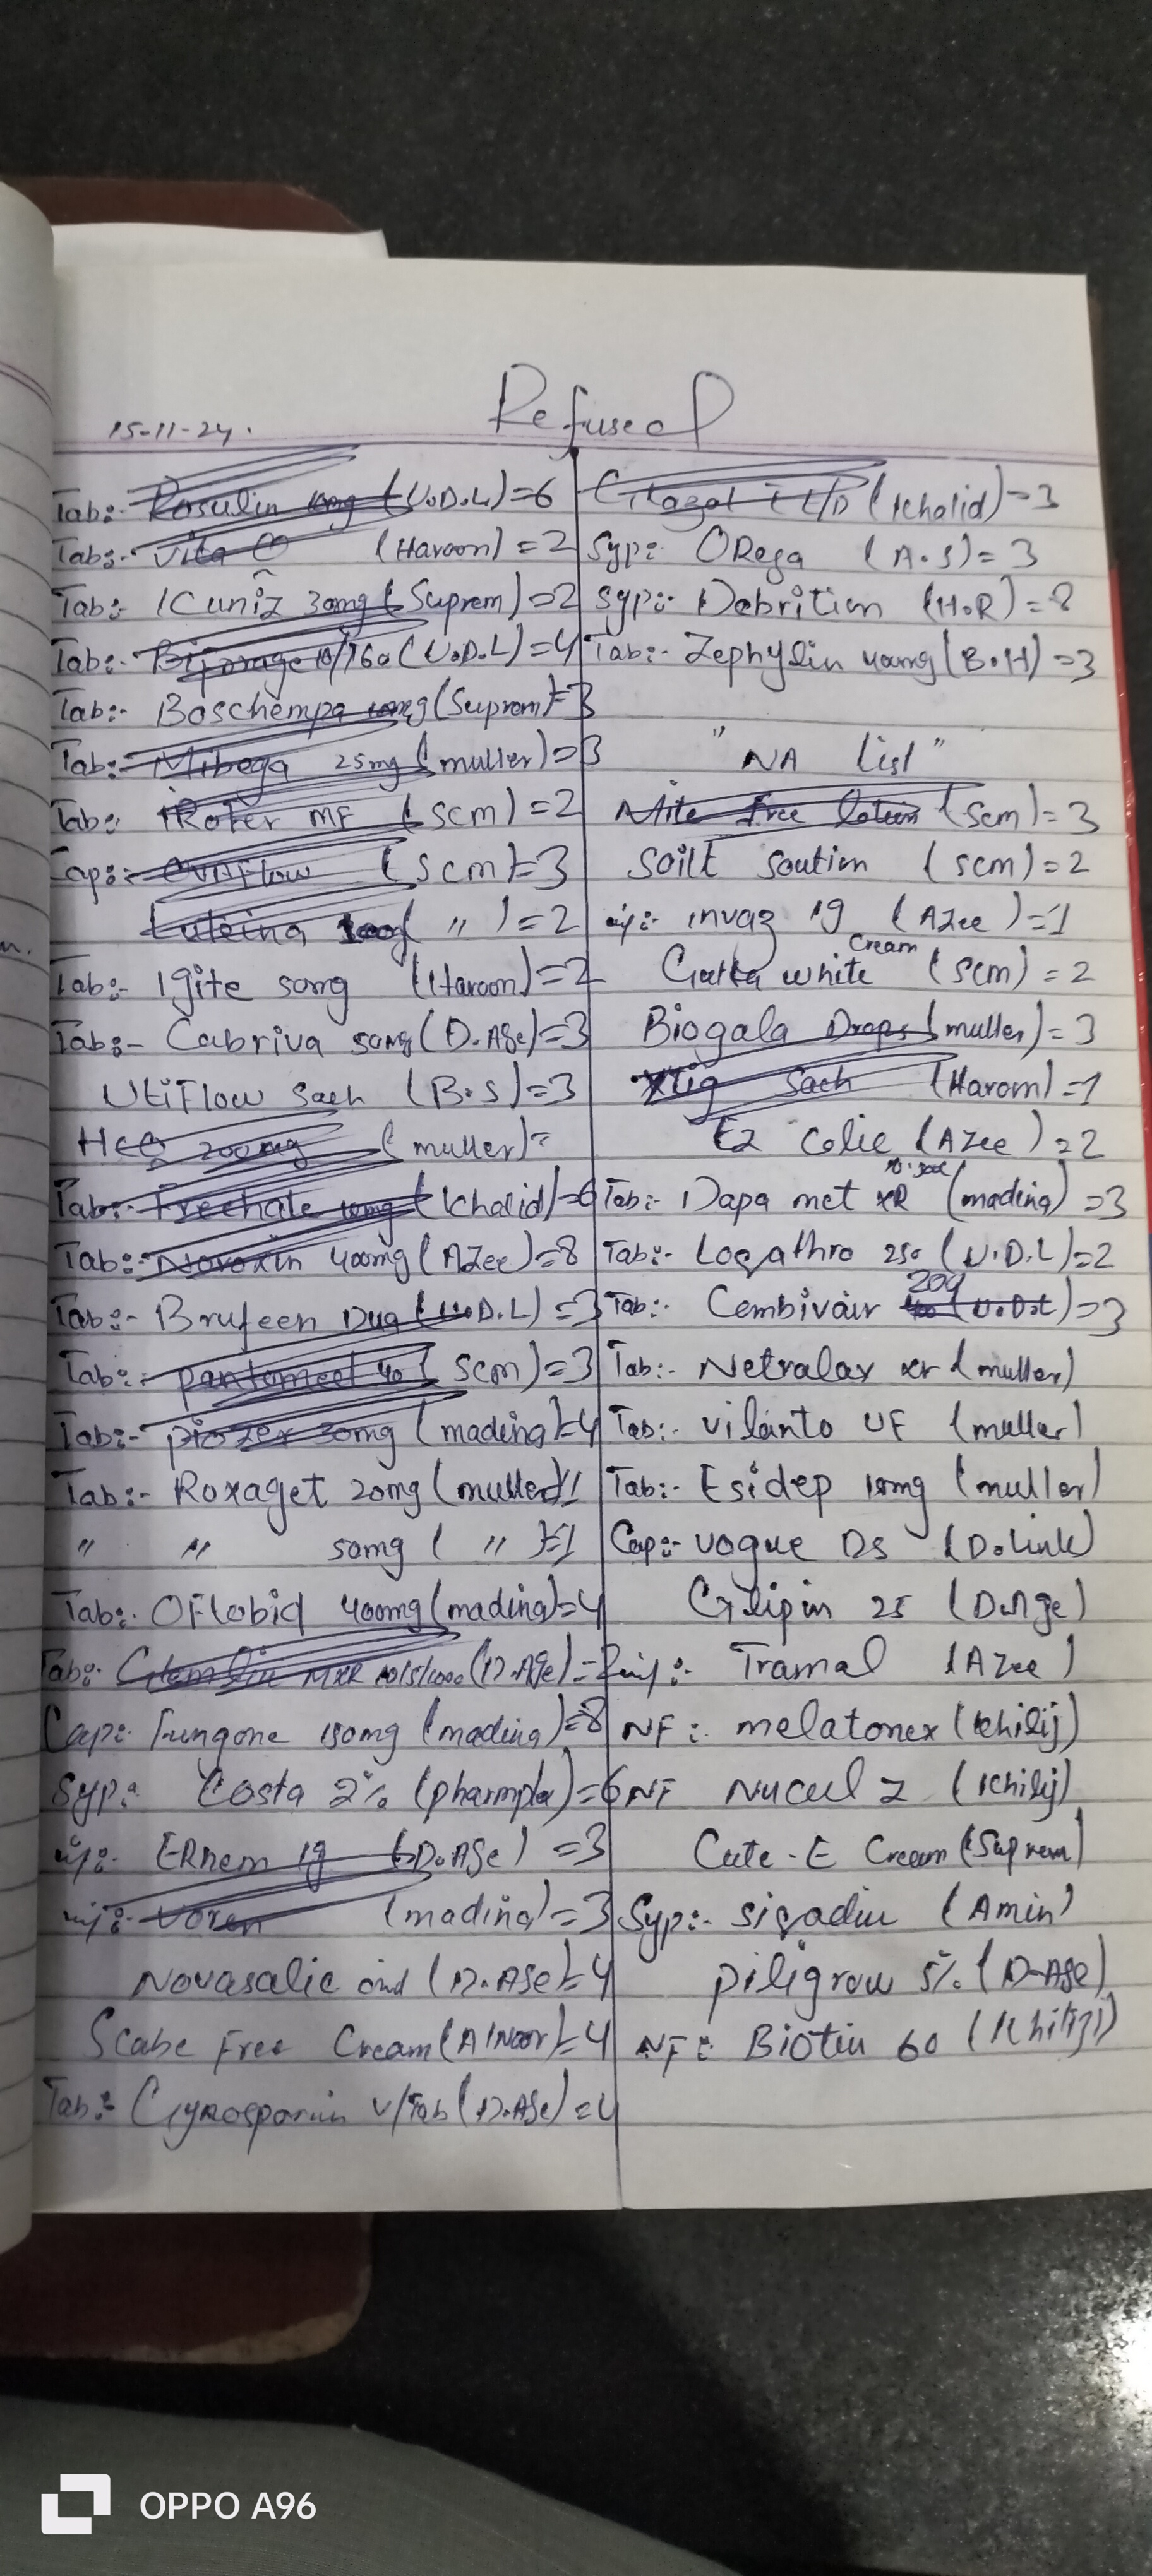 Refused
15-11-24.
Tab:- Rosulin 10mg (U.D.L)=6
Tab:- Vita (Haroon)=2
Tab:- Kuniz 30mg (Suprem)=2
Tab:- 10/160 (U.D.L)=4
Tab:- Boschempa 10mg (Suprem)=3
Tab:- Mibega 25mg (muller)=3
Tab:- MF (scm)=2
Cap:- (scm)=3
Luteina ( " )=2
Tab:- Igite 50mg (Haroon)=2
Tab:- Cabriva 50mg (D.Age)=3
UtiFlow Sach (B.S)=3
HCQ 200mg (muller)=
Tab:- Freehale 10mg (Khalid)=6
Tab:- Novoxin 400mg (AZee)=8
Tab:- Brufeen Dua (U.D.L)=3
Tab:- 40 (scm)=3
Tab:- piozer 30mg (madina)=4
Tab:- Roxaget 20mg (muller)=1
" " 50mg ( " )=1
Tab:- OFlobid 400mg (madina)=4
Tab:- MXR 10/5/1000 (D.Age)=2
Cap:- Fungone 150mg (madina)=8
Syp:- Costa 2% =6
inj:- ERnem 1g (D.Age)=3
inj:- Voren (madina)=3
Novasalic oint (D.Age)=4
Scabe Free Cream (AlNoor)=4
Tab:- Gynosporin V/Tab (D.Age)=4
(Khalid)=3
Syp:- ORega (A.S)=3
Syp:- Debrition (H.R)=8
Tab:- Zephylin 400mg (B.H)=3
"NA List"
Mite Free lotion (scm)=3
Soilt Soution (scm)=2
inj:- invaz 1g (AZee)=1
white Cream (scm)=2
Biogala Drops (muller)=3
Xtig Sach (Haroon)=1
Ez Colic (AZee)=2
Tab:- Dapa met XR (madina)=3
Tab:- 250 (U.D.L)=2
Tab:- Cembivair 200 (U.D.L)=3
Tab:- Netralax xr (muller)
Tab:- vilanto UF (muller)
Tab:- Esidep 10mg (muller)
Cap:- vogue Ds (D.Link)
Glipin 25 (D.Age)
inj:- Tramal (AZee)
NF:- melatonex (Khilij)
NF Nuceel Z (Khilij)
Cute-E Cream (Suprem)
Syp:- (Amin)
piligrow 5% (D-Age)
NF:- Biotin 60 (Khiliji)
OPPO A96